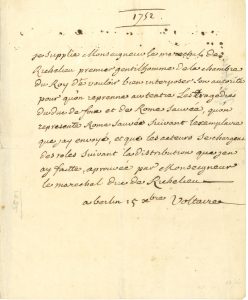 1752
je supplie Monseigneur le marechal de
Richelieu premier gentilhomme de la chambre
du Roy de vouloir bien interposer son autorité
pour qu'on reprenne au teatre Les tragedies
du duc de foix et de Rome sauvée, qu'on
represente Rome sauvée suivant l'exemplaire
que j'ay envoyé, et que les acteurs se chargent
des roles suivant la distribution que j'en
ay faitte, aprouvée par Monseigneur
le marechal duc de Richelieu
a berlin 15 xbre Voltaire